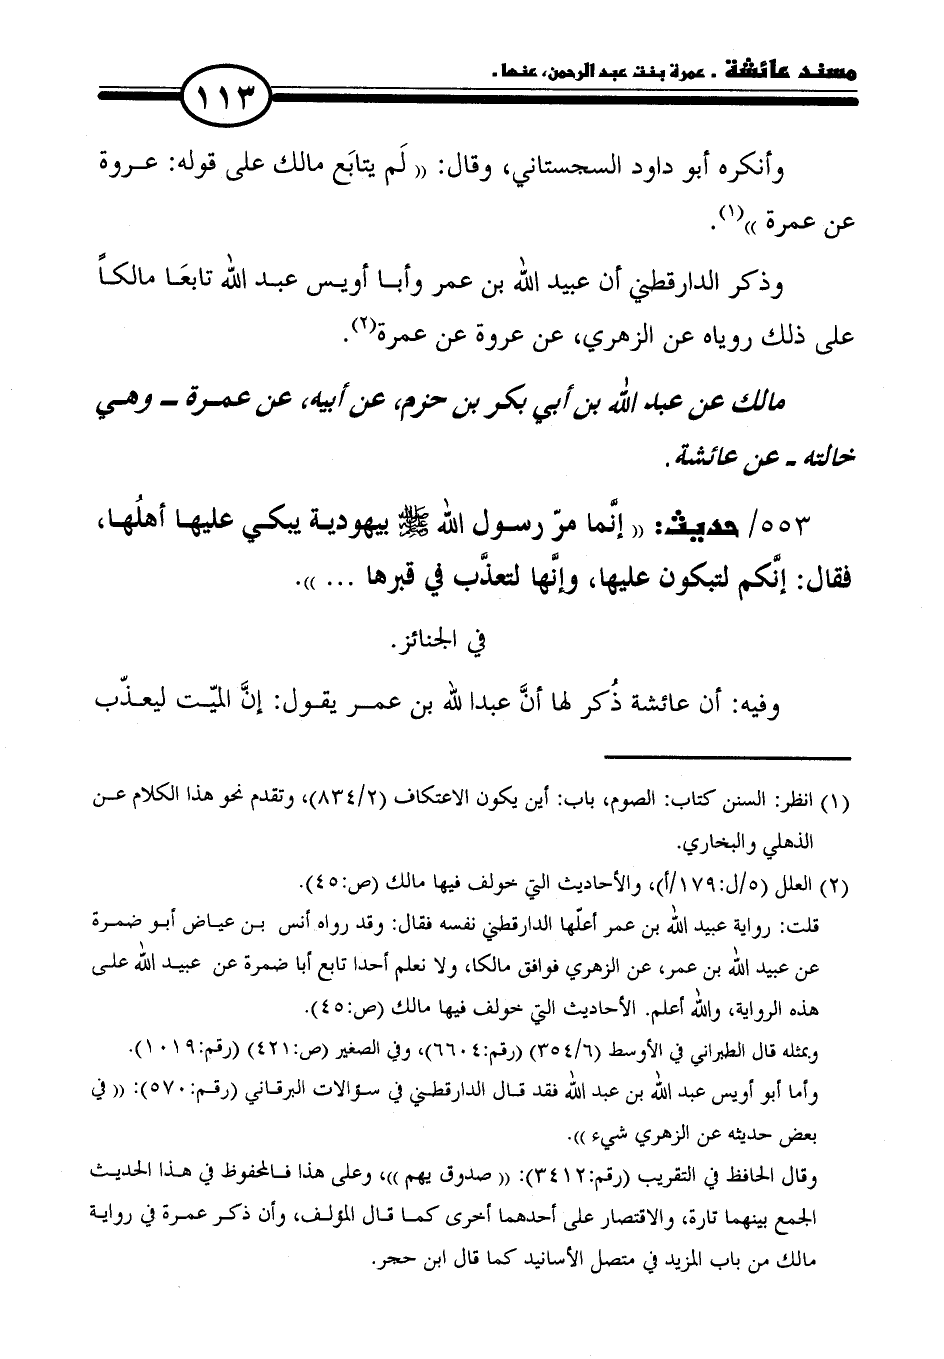 مسند عائشة . عمرة بنت عبد الرحمن، عنها .
١١٣
وأنكره أبو داود السجستاني، وقال: « لَم يتابَع مالك على قوله: عروة
عن عمرة »(١).
وذكر الدارقطني أن عبيد الله بن عمر وأبا أويس عبد الله تابعَا مالكاً
على ذلك روياه عن الزهري، عن عروة عن عمرة(٢).
مالك عن عبد الله بن أبي بكر بن حزم، عن أبيه، عن عمرة ـ وهي
خالته ـ عن عائشة.
٥٥٣/ حديث: « إنَّما مرّ رسول الله ﷺ بيهودية يبكي عليها أهلُها،
فقال: إنَّكم لتبكون عليها، وإنَّها لتعذَّب في قبرها ... ».
في الجنائز.
وفيه: أن عائشة ذُكر لها أنَّ عبدا لله بن عمر يقول: إنَّ الميّت ليعذّب
(١) انظر: السنن كتاب: الصوم، باب: أين يكون الاعتكاف (٨٣٤/٢)، وتقدم نحو هذا الكلام عن
الذهلي والبخاري.
(٢) العلل (٥/ل:١٧٩/أ)، والأحاديث التي خولف فيها مالك (ص:٤٥).
قلت: رواية عبيد الله بن عمر أعلّها الدارقطني نفسه فقال: وقد رواه أنس بن عياض أبو ضمرة
عن عبيد الله بن عمر، عن الزهري فوافق مالكا، ولا نعلم أحدا تابع أبا ضمرة عن عبيد الله على
هذه الرواية، والله أعلم. الأحاديث التي خولف فيها مالك (ص:٤٥).
وبمثله قال الطبراني في الأوسط (٣٥٤/٦) (رقم:٦٦٠٤)، وفي الصغير (ص:٤٢١) (رقم:١٠١٩).
وأما أبو أويس عبد الله بن عبد الله فقد قال الدارقطني في سؤالات البرقاني (رقم:٥٧٠): « في
بعض حديثه عن الزهري شيء ».
وقال الحافظ في التقريب (رقم:٣٤١٢): « صدوق يهم »، وعلى هذا فالمحفوظ في هذا الحديث
الجمع بينهما تارة، والاقتصار على أحدهما أخرى كما قال المؤلف، وأن ذكر عمرة في رواية
مالك من باب المزيد في متصل الأسانيد كما قال ابن حجر.